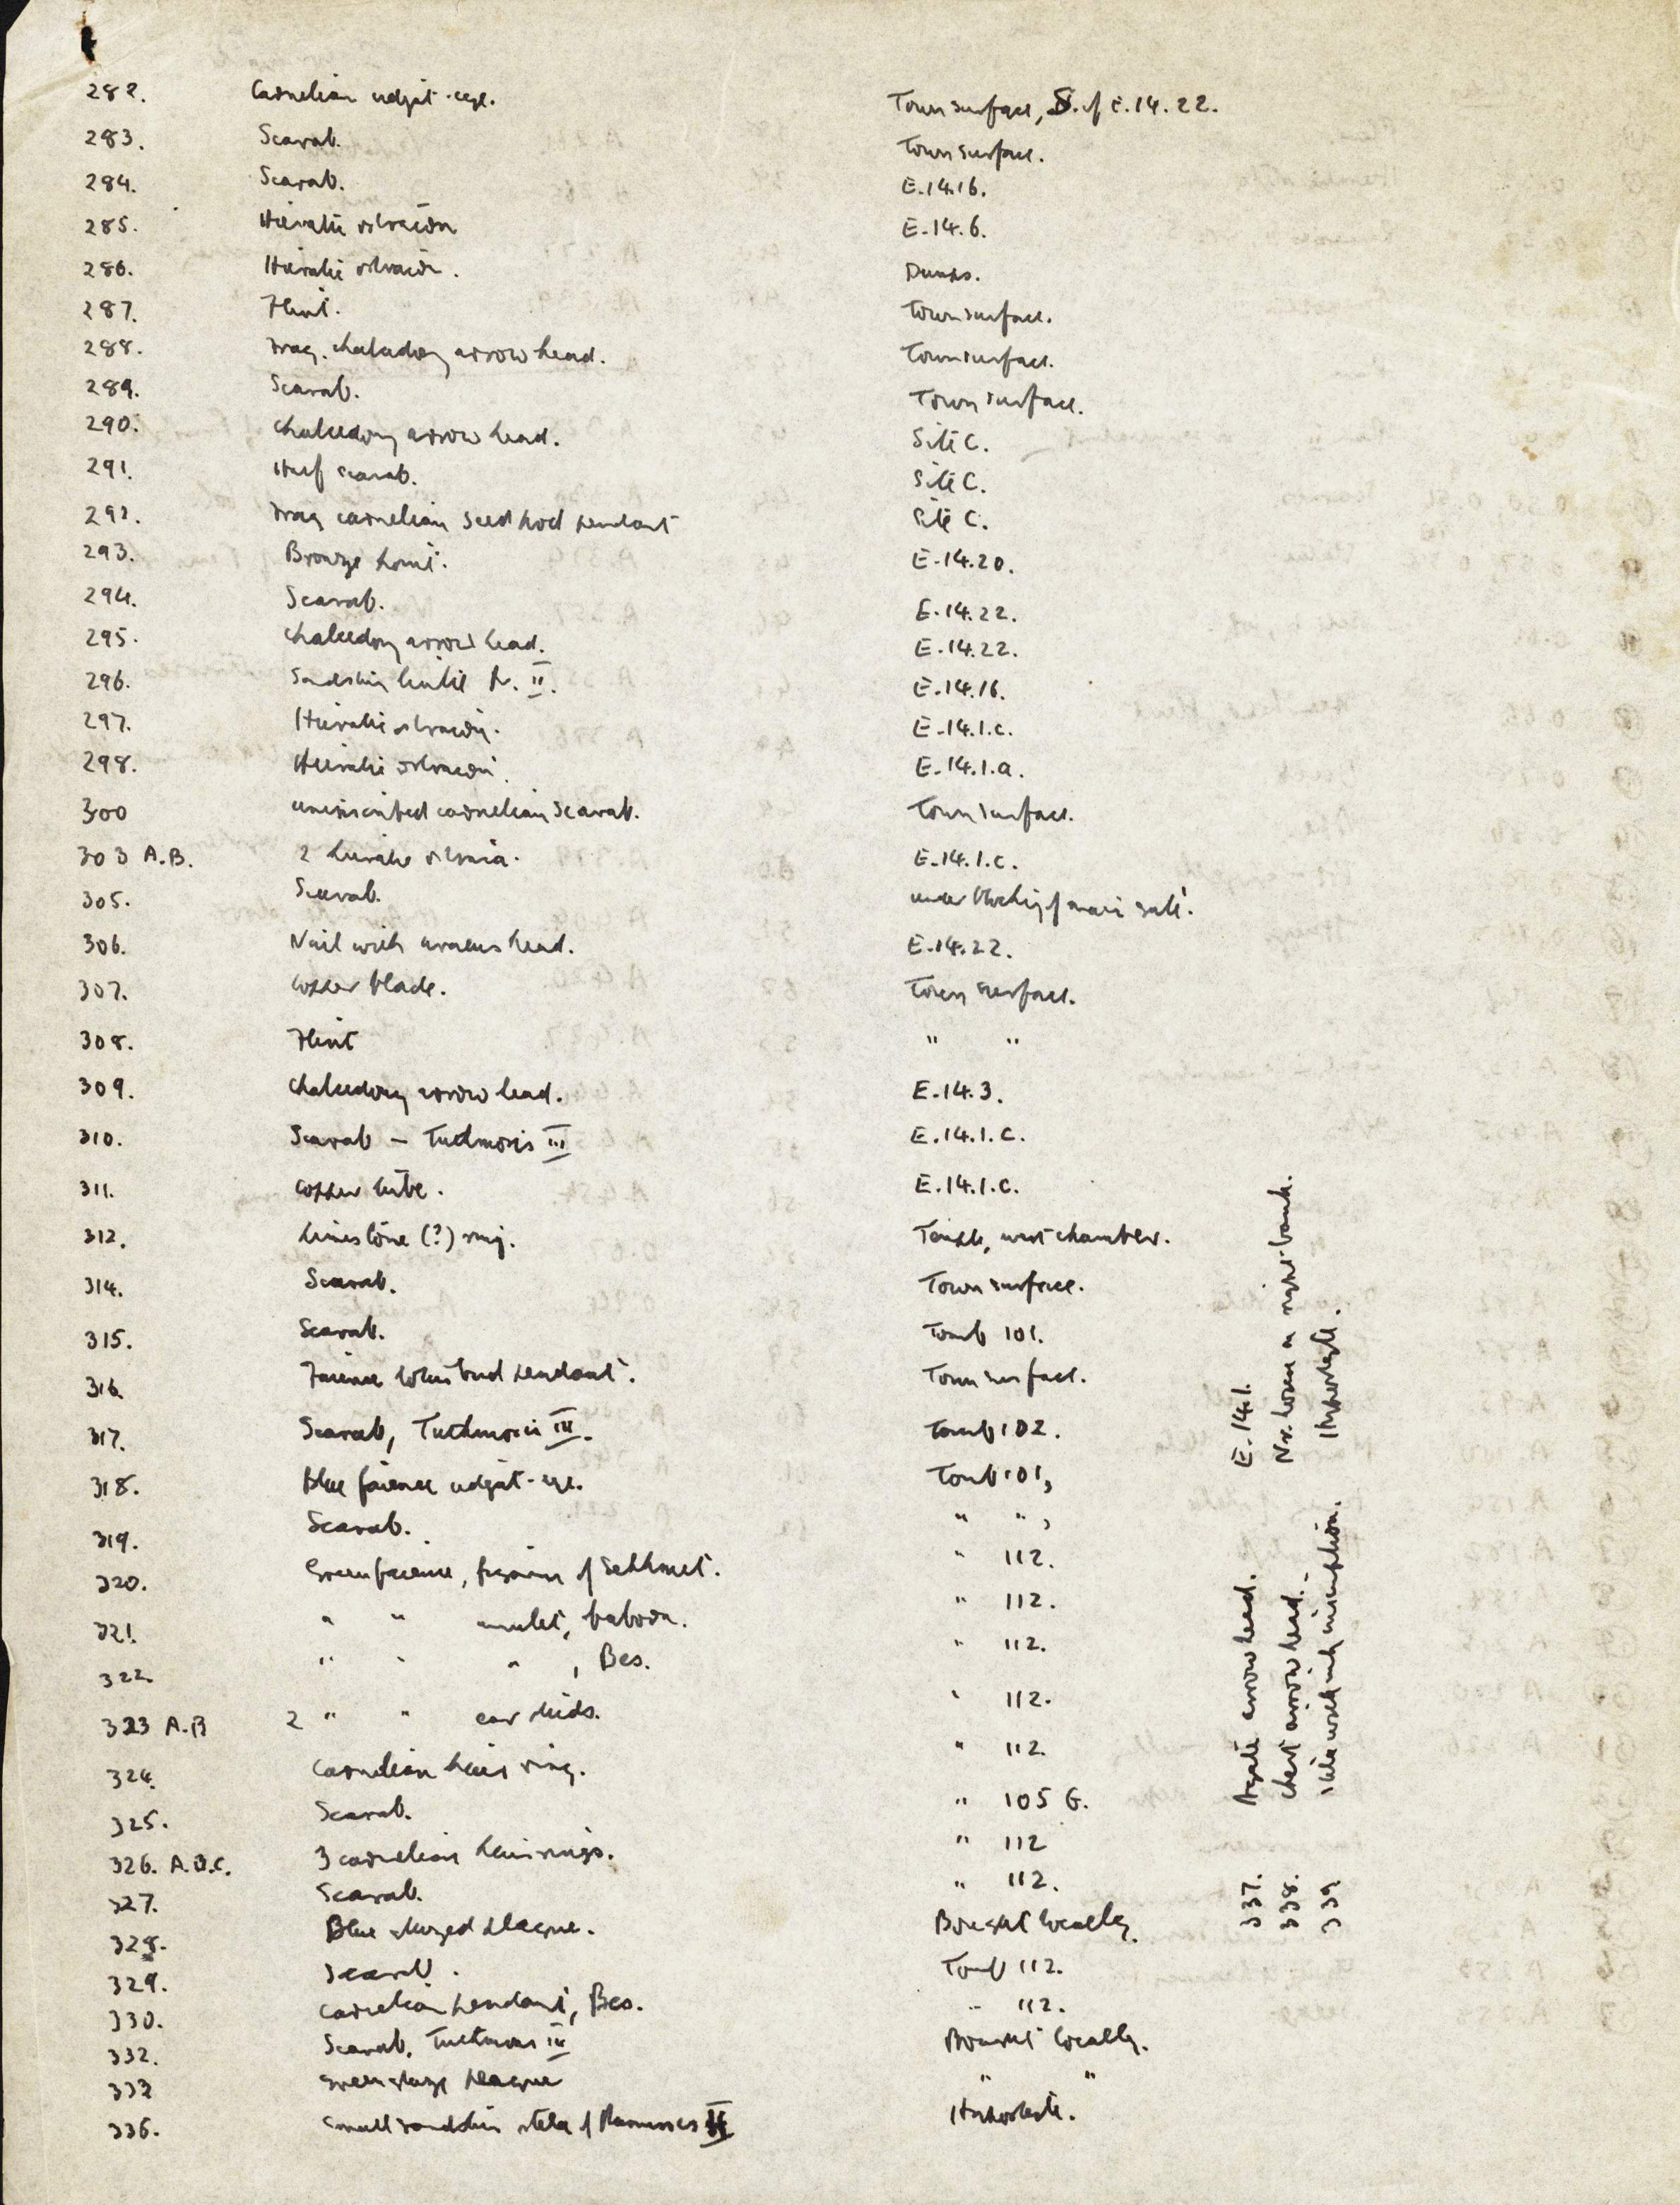 282. Carnelian udjat-eye. Town surface, S. of E.14.22.
283. Scarab. Town surface.
284. Scarab. E.14.16.
285. Hieratic ostracon E.14.6.
286. Hieratic ostracon. Dumps.
287. Flint. Town surface.
288. Frag. chalcedony arrow head. Town surface.
289. Scarab. Town surface.
290. Chalcedony arrow head. Site C.
291. Half scarab. Site C.
292. Frag carnelian seed pod pendant Site C.
293. Bronze point. E.14.20.
294. Scarab. E.14.22.
295. Chalcedony arrow head. E.14.22.
296. Sandstone lintel R. II. E.14.16.
297. Hieratic ostracon. E.14.1.c.
298. Hieratic ostracon. E.14.1.a.
300 Uninscribed carnelian scarab. Town surface.
303 A.B. 2 hieratic ostraca. E.14.1.c.
305. Scarab. under blocking of main gate.
306. Nail with uraeus head. E.14.22.
307. Copper blade. Town surface.
308. Flint " "
309. Chalcedony arrow head. E.14.3.
310. Scarab – Tuthmosis III E.14.1.C.
311. Copper tube. E.14.1.C.
312. Limestone (?) ring. Temple, west chamber.
314. Scarab. Town surface.
315. Scarab. Tomb 101.
316. Faience lotus bud pendant. Town surface.
317. Scarab, Tuthmosis III. Tomb 102.
318. Blue faience udjat-eye. Tomb 101,
319. Scarab. " " ,
320. Green faience, figurine of Sekhmet. " 112.
321. " " amulet, baboon. " 112.
322. " " " , Bes. " 112.
323 A.B 2 " " ear studs. " 112.
324. Carnelian hair ring. " 112.
325. Scarab. " 105 G.
326. A.B.C. 3 carnelian hair rings. " 112
327. Scarab. " 112.
328. Blue glazed plaque. Bought locally.
329. Scarab. Tomb 112.
330. Carnelian pendant, Bes. " 112.
332. Scarab, Tuthmosis III Bought locally.
333 Green glaze plaque " "
336. Small sandstone stela of Ramesses II Hypostyle.
337. Agate arrow head. E.14.1.
338. Chert arrow head. Nr. on right bank.
339 Stela with ink inscription. Hypostyle.